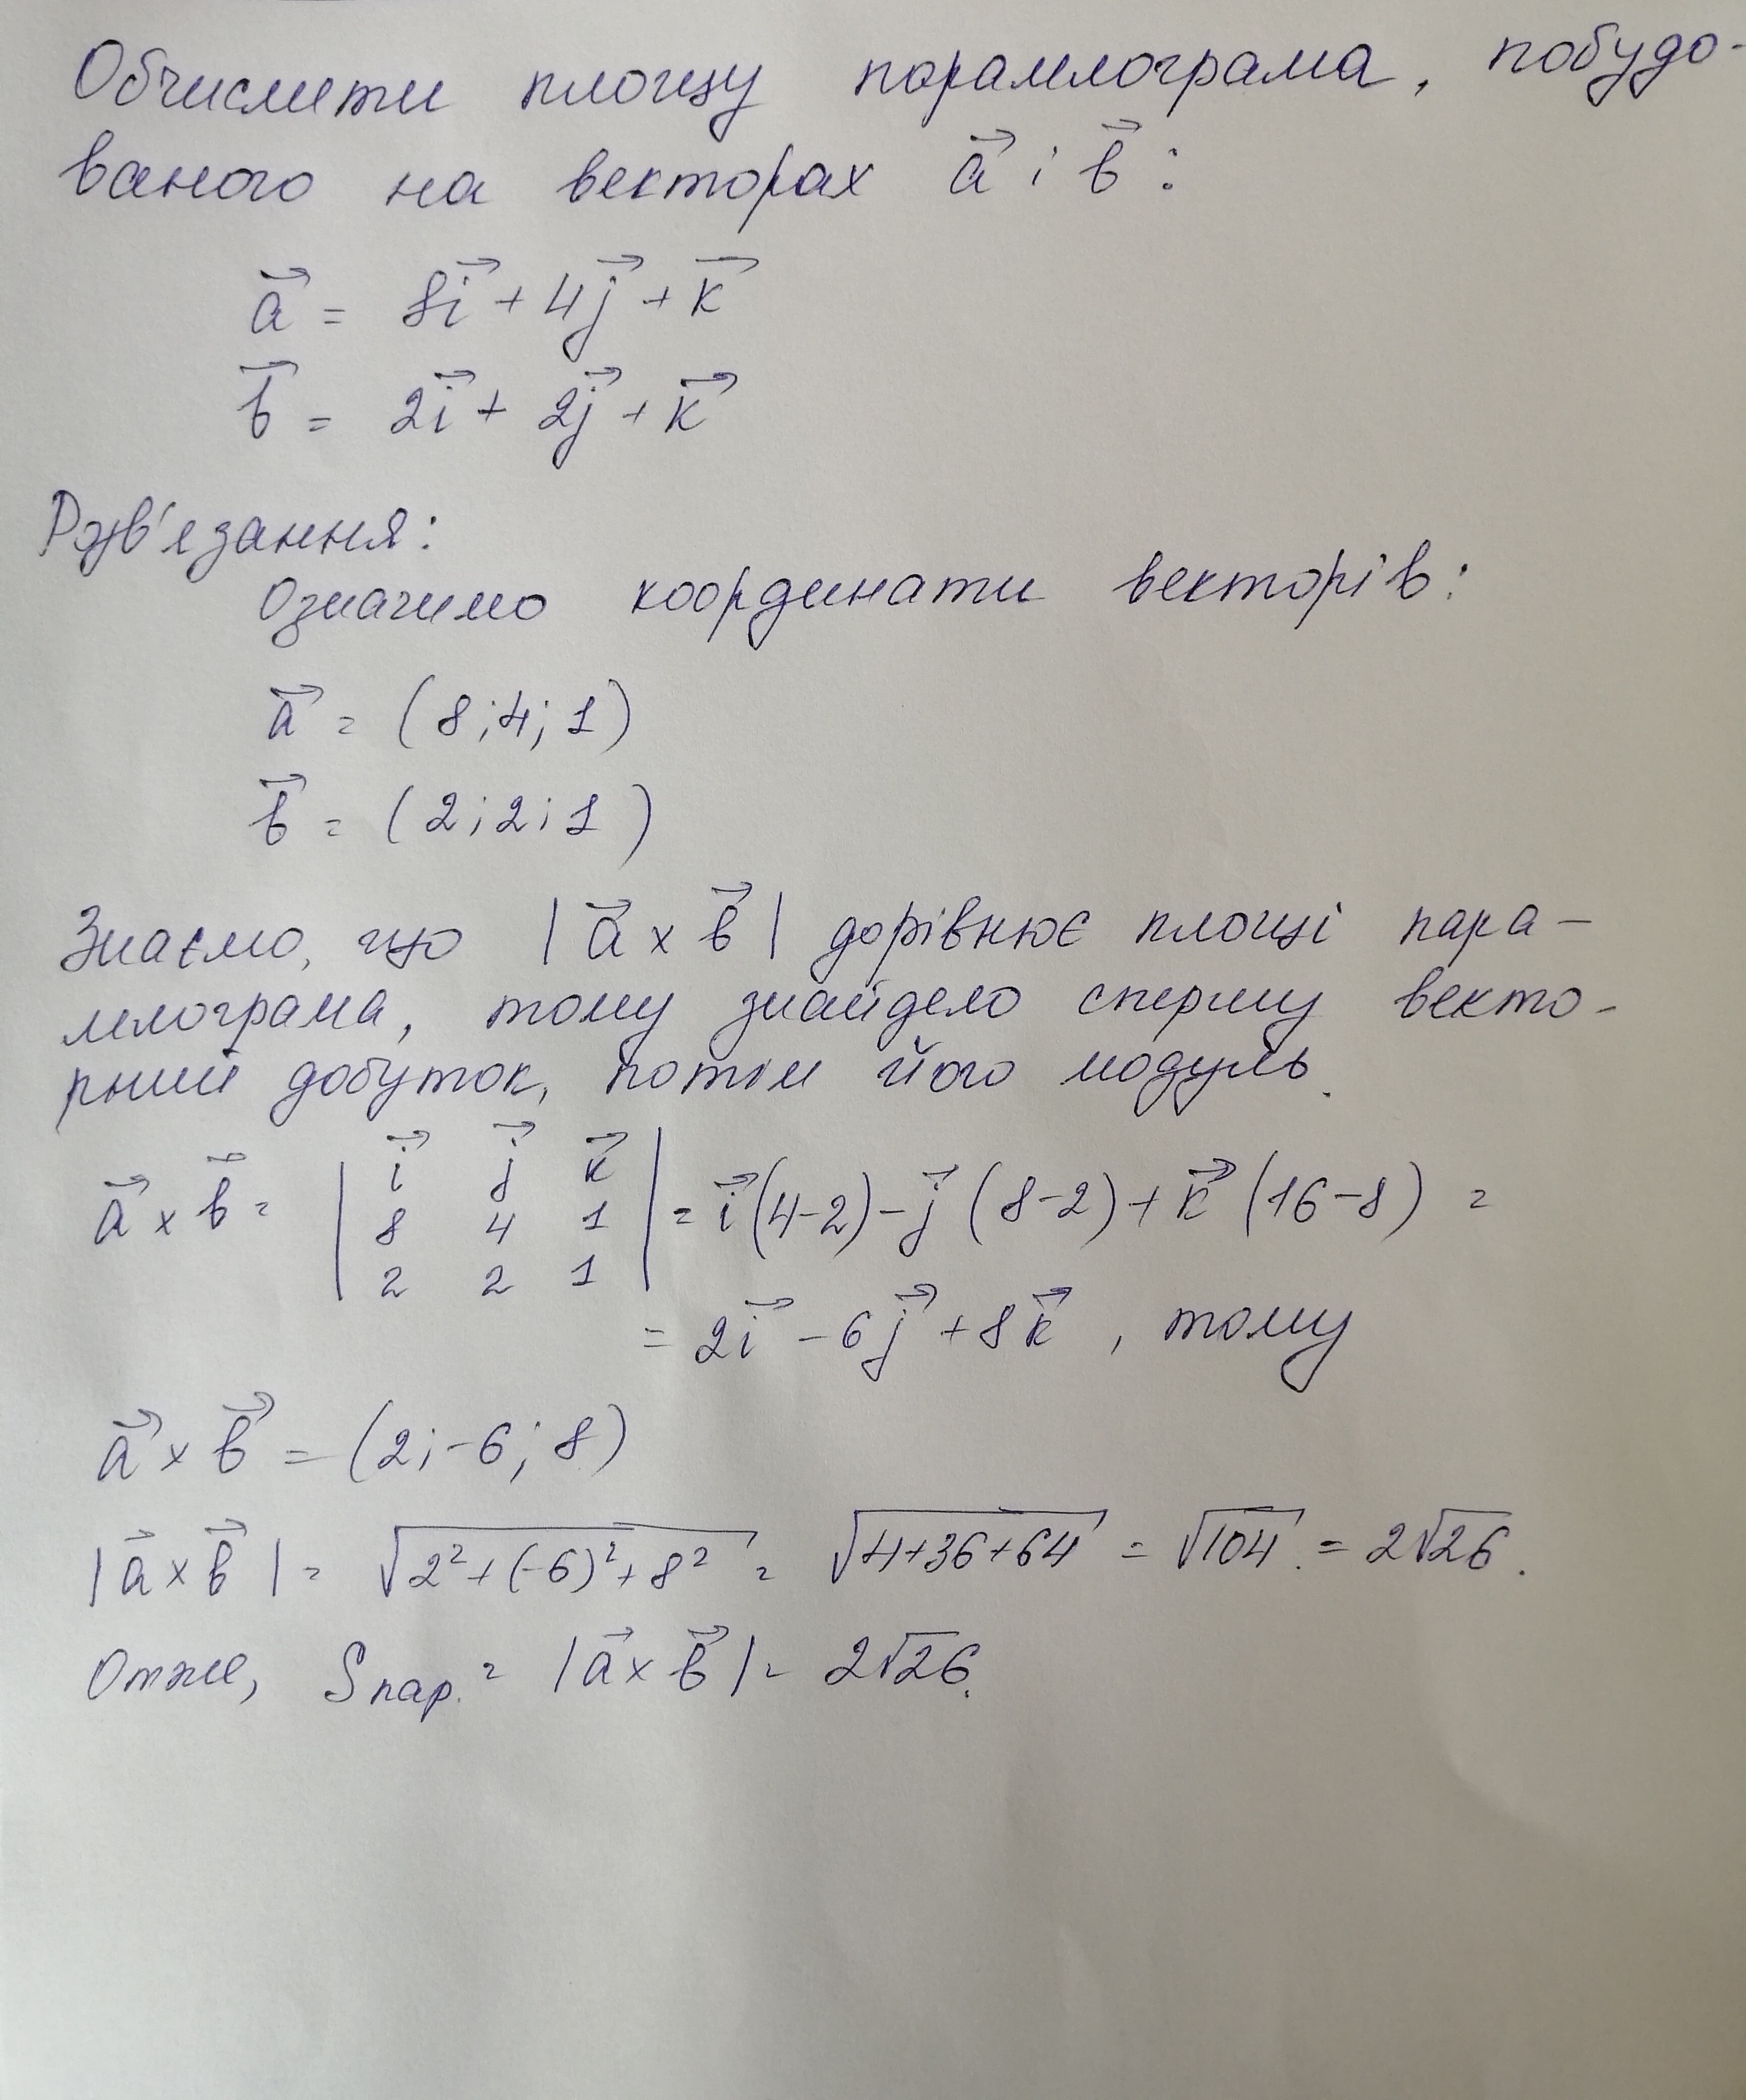 Обчислити площу паралелограма, побудо-
ваного на векторах a⃗ і b⃗ :
a⃗ = 8i⃗ + 4j⃗ + k⃗
b⃗ = 2i⃗ + 2j⃗ + k⃗
Розв'язання:
Означимо координати векторів:
a⃗ = (8; 4; 1)
b⃗ = (2; 2; 1)
Знаємо, що |a⃗ × b⃗| дорівнює площі пара-
лелограма, тому знайдемо спершу векто-
рний добуток, потім його модуль.
a⃗ × b⃗ = | i⃗ j⃗ k⃗ |
| 8 4 1 | = i⃗(4-2) - j⃗(8-2) + k⃗(16-8) =
| 2 2 1 |
= 2i⃗ - 6j⃗ + 8k⃗, тому
a⃗ × b⃗ = (2; -6; 8)
|a⃗ × b⃗| = √(2² + (-6)² + 8²) = √(4+36+64) = √104. = 2√26.
Отже, Sпар. = |a⃗ × b⃗| = 2√26.